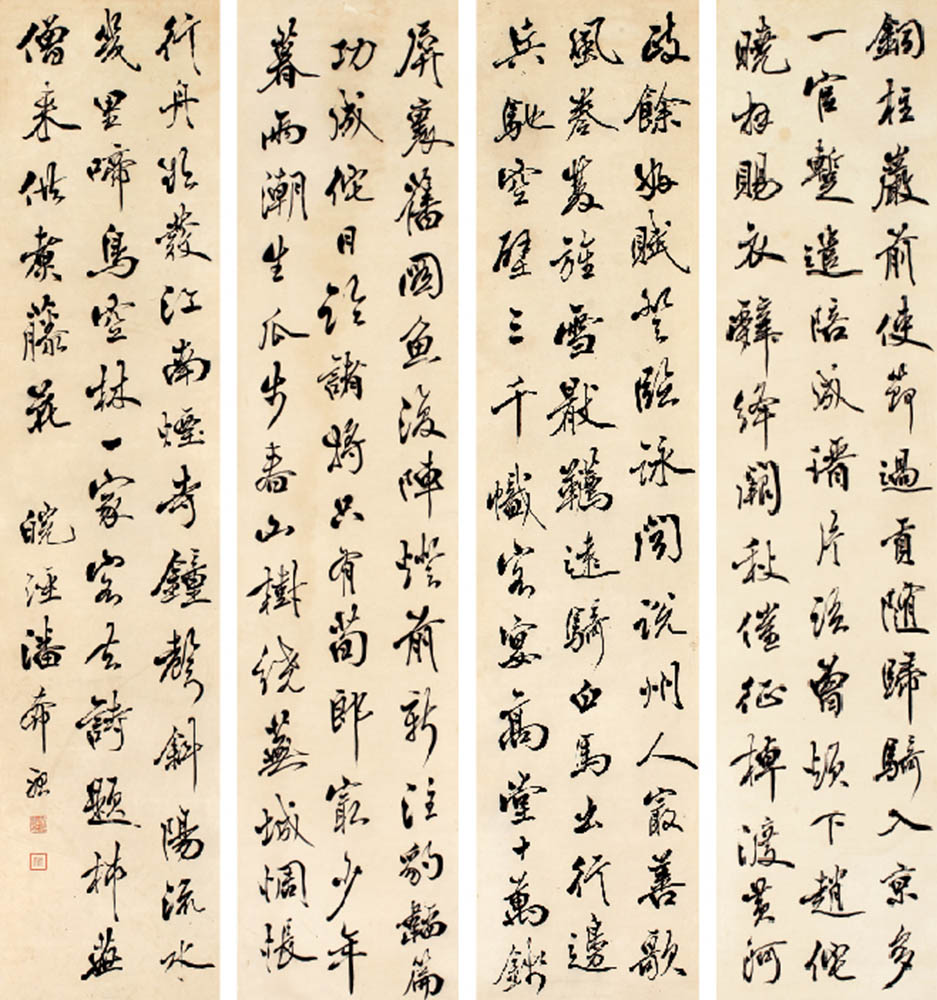 銅柱巖前使節過貢隨歸騎入京多
一官蹔遣陪藏譜片語曾煩下趙佗
曉拜賜衣辭絳闕秋催征棹渡黃河
政餘好賦登臨詠閱說州人最善歌
風卷旌雪散鞲速騎白馬出行邊
兵馳空壁三千幟客宴高堂十萬錢
屏裏舊圖魚復陣燈前新注豹韜篇
功成佗日論諸將只有荀郎最少年
暮雨潮生瓜步春山樹繞蕪城惆悵
行舟欲發江南煙寺鐘聲斜陽流水
幾里啼鳥空林一家客去詩題柿葉
僧來供煮藤花 皖涇潘奔